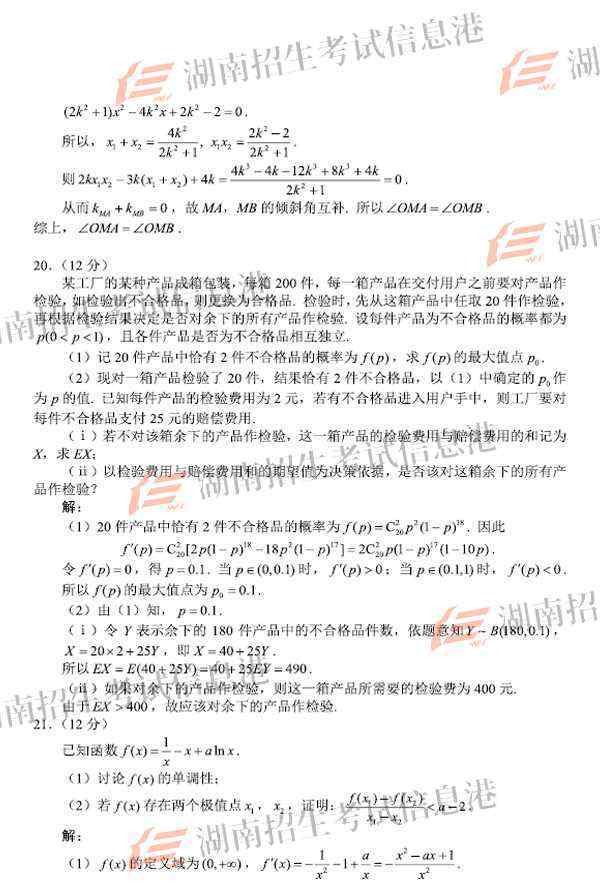 湖南招生考试信息港
湖
(2k²+1)x²-4k²x+2k²-2=0.
所以，x₁+x₂=4k²/(2k²+1), x₁x₂=(2k²-2)/(2k²+1).
则2kx₁x₂-3k(x₁+x₂)+4k=(4k³-4k-12k³+8k³+4k)/(2k²+1)=0.
从而k_MA+k_MB=0，故MA，MB的倾斜角互补. 所以∠OMA=∠OMB.
综上，∠OMA=∠OMB.
20.（12分）
某工厂的某种产品成箱包装，每箱200件，每一箱产品在交付用户之前要对产品作
检验，如检验出不合格品，则更换为合格品. 检验时，先从这箱产品中任取20件作检验，
再根据检验结果决定是否对余下的所有产品作检验. 设每件产品为不合格品的概率都为
p(0<p<1)，且各件产品是否为不合格品相互独立.
（1）记20件产品中恰有2件不合格品的概率为f(p)，求f(p)的最大值点p₀.
（2）现对一箱产品检验了20件，结果恰有2件不合格品，以（1）中确定的p₀作
为p的值. 已知每件产品的检验费用为2元，若有不合格品进入用户手中，则工厂要对
每件不合格品支付25元的赔偿费用.
（ⅰ）若不对该箱余下的产品作检验，这一箱产品的检验费用与赔偿费用的和记为
X，求EX；
（ⅱ）以检验费用与赔偿费用和的期望值为决策依据，是否该对这箱余下的所有产
品作检验？
湖南招生考试信息港
解：
（1）20件产品中恰有2件不合格品的概率为f(p)=C₂₀²p²(1-p)¹⁸. 因此
f′(p)=C₂₀²[2p(1-p)¹⁸-18p²(1-p)¹⁷]=2C₂₀²p(1-p)¹⁷(1-10p).
令f′(p)=0，得p=0.1. 当p∈(0,0.1)时，f′(p)>0；当p∈(0.1,1)时，f′(p)<0.
所以f(p)的最大值点为p₀=0.1.
（2）由（1）知，p=0.1.
（ⅰ）令Y表示余下的180件产品中的不合格品件数，依题意知Y~B(180,0.1)，
X=20×2+25Y，即X=40+25Y.
所以EX=E(40+25Y)=40+25EY=490.
（ⅱ）如果对余下的产品作检验，则这一箱产品所需要的检验费为400元.
由于EX>400，故应该对余下的产品作检验.
21.（12分）
已知函数f(x)=1/x-x+a ln x.
（1）讨论f(x)的单调性；
（2）若f(x)存在两个极值点x₁，x₂，证明：(f(x₁)-f(x₂))/(x₁-x₂)<a-2.
湖南招生考试信息港
解：
（1）f(x)的定义域为(0,+∞)，f′(x)=-1/x²-1+a/x=-(x²-ax+1)/x².